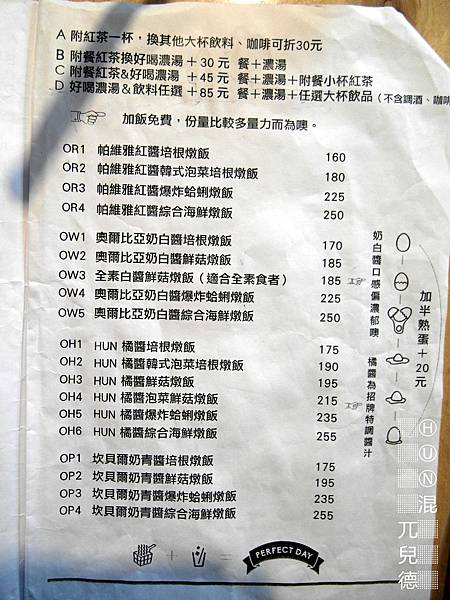 A 附紅茶一杯，換其他大杯飲料、咖啡可折30元
B 附餐紅茶換好喝濃湯 ＋30元 餐＋濃湯
C 附餐紅茶&好喝濃湯 ＋45元 餐＋濃湯＋附餐小杯紅茶
D 好喝濃湯&飲料任選 ＋85元 餐＋濃湯＋任選大杯飲品（不含調酒、咖啡
加飯免費，份量比較多量力而為噢。
OR1 帕維雅紅醬培根燉飯 160
OR2 帕維雅紅醬韓式泡菜培根燉飯 180
OR3 帕維雅紅醬爆炸蛤蜊燉飯 225
OR4 帕維雅紅醬綜合海鮮燉飯 250
OW1 奧爾比亞奶白醬培根燉飯 170
OW2 奧爾比亞奶白醬鮮菇燉飯 185
OW3 全素白醬鮮菇燉飯（適合全素食者） 185
OW4 奧爾比亞奶白醬爆炸蛤蜊燉飯 225
OW5 奧爾比亞奶白醬綜合海鮮燉飯 250
奶白醬口感偏濃郁噢
加半熟蛋＋20元
OH1 HUN 橘醬培根燉飯 175
OH2 HUN 橘醬韓式泡菜培根燉飯 190
OH3 HUN 橘醬鮮菇燉飯 195
OH4 HUN 橘醬泡菜鮮菇燉飯 215
OH5 HUN 橘醬爆炸蛤蜊燉飯 235
OH6 HUN 橘醬綜合海鮮燉飯 255
橘醬為招牌特調醬汁
OP1 坎貝爾奶青醬培根燉飯 175
OP2 坎貝爾奶青醬鮮菇燉飯 195
OP3 坎貝爾奶青醬爆炸蛤蜊燉飯 235
OP4 坎貝爾奶青醬綜合海鮮燉飯 255
＋ ＝ PERFECT DAY
ⒽⓊⓃ混
兀兒德